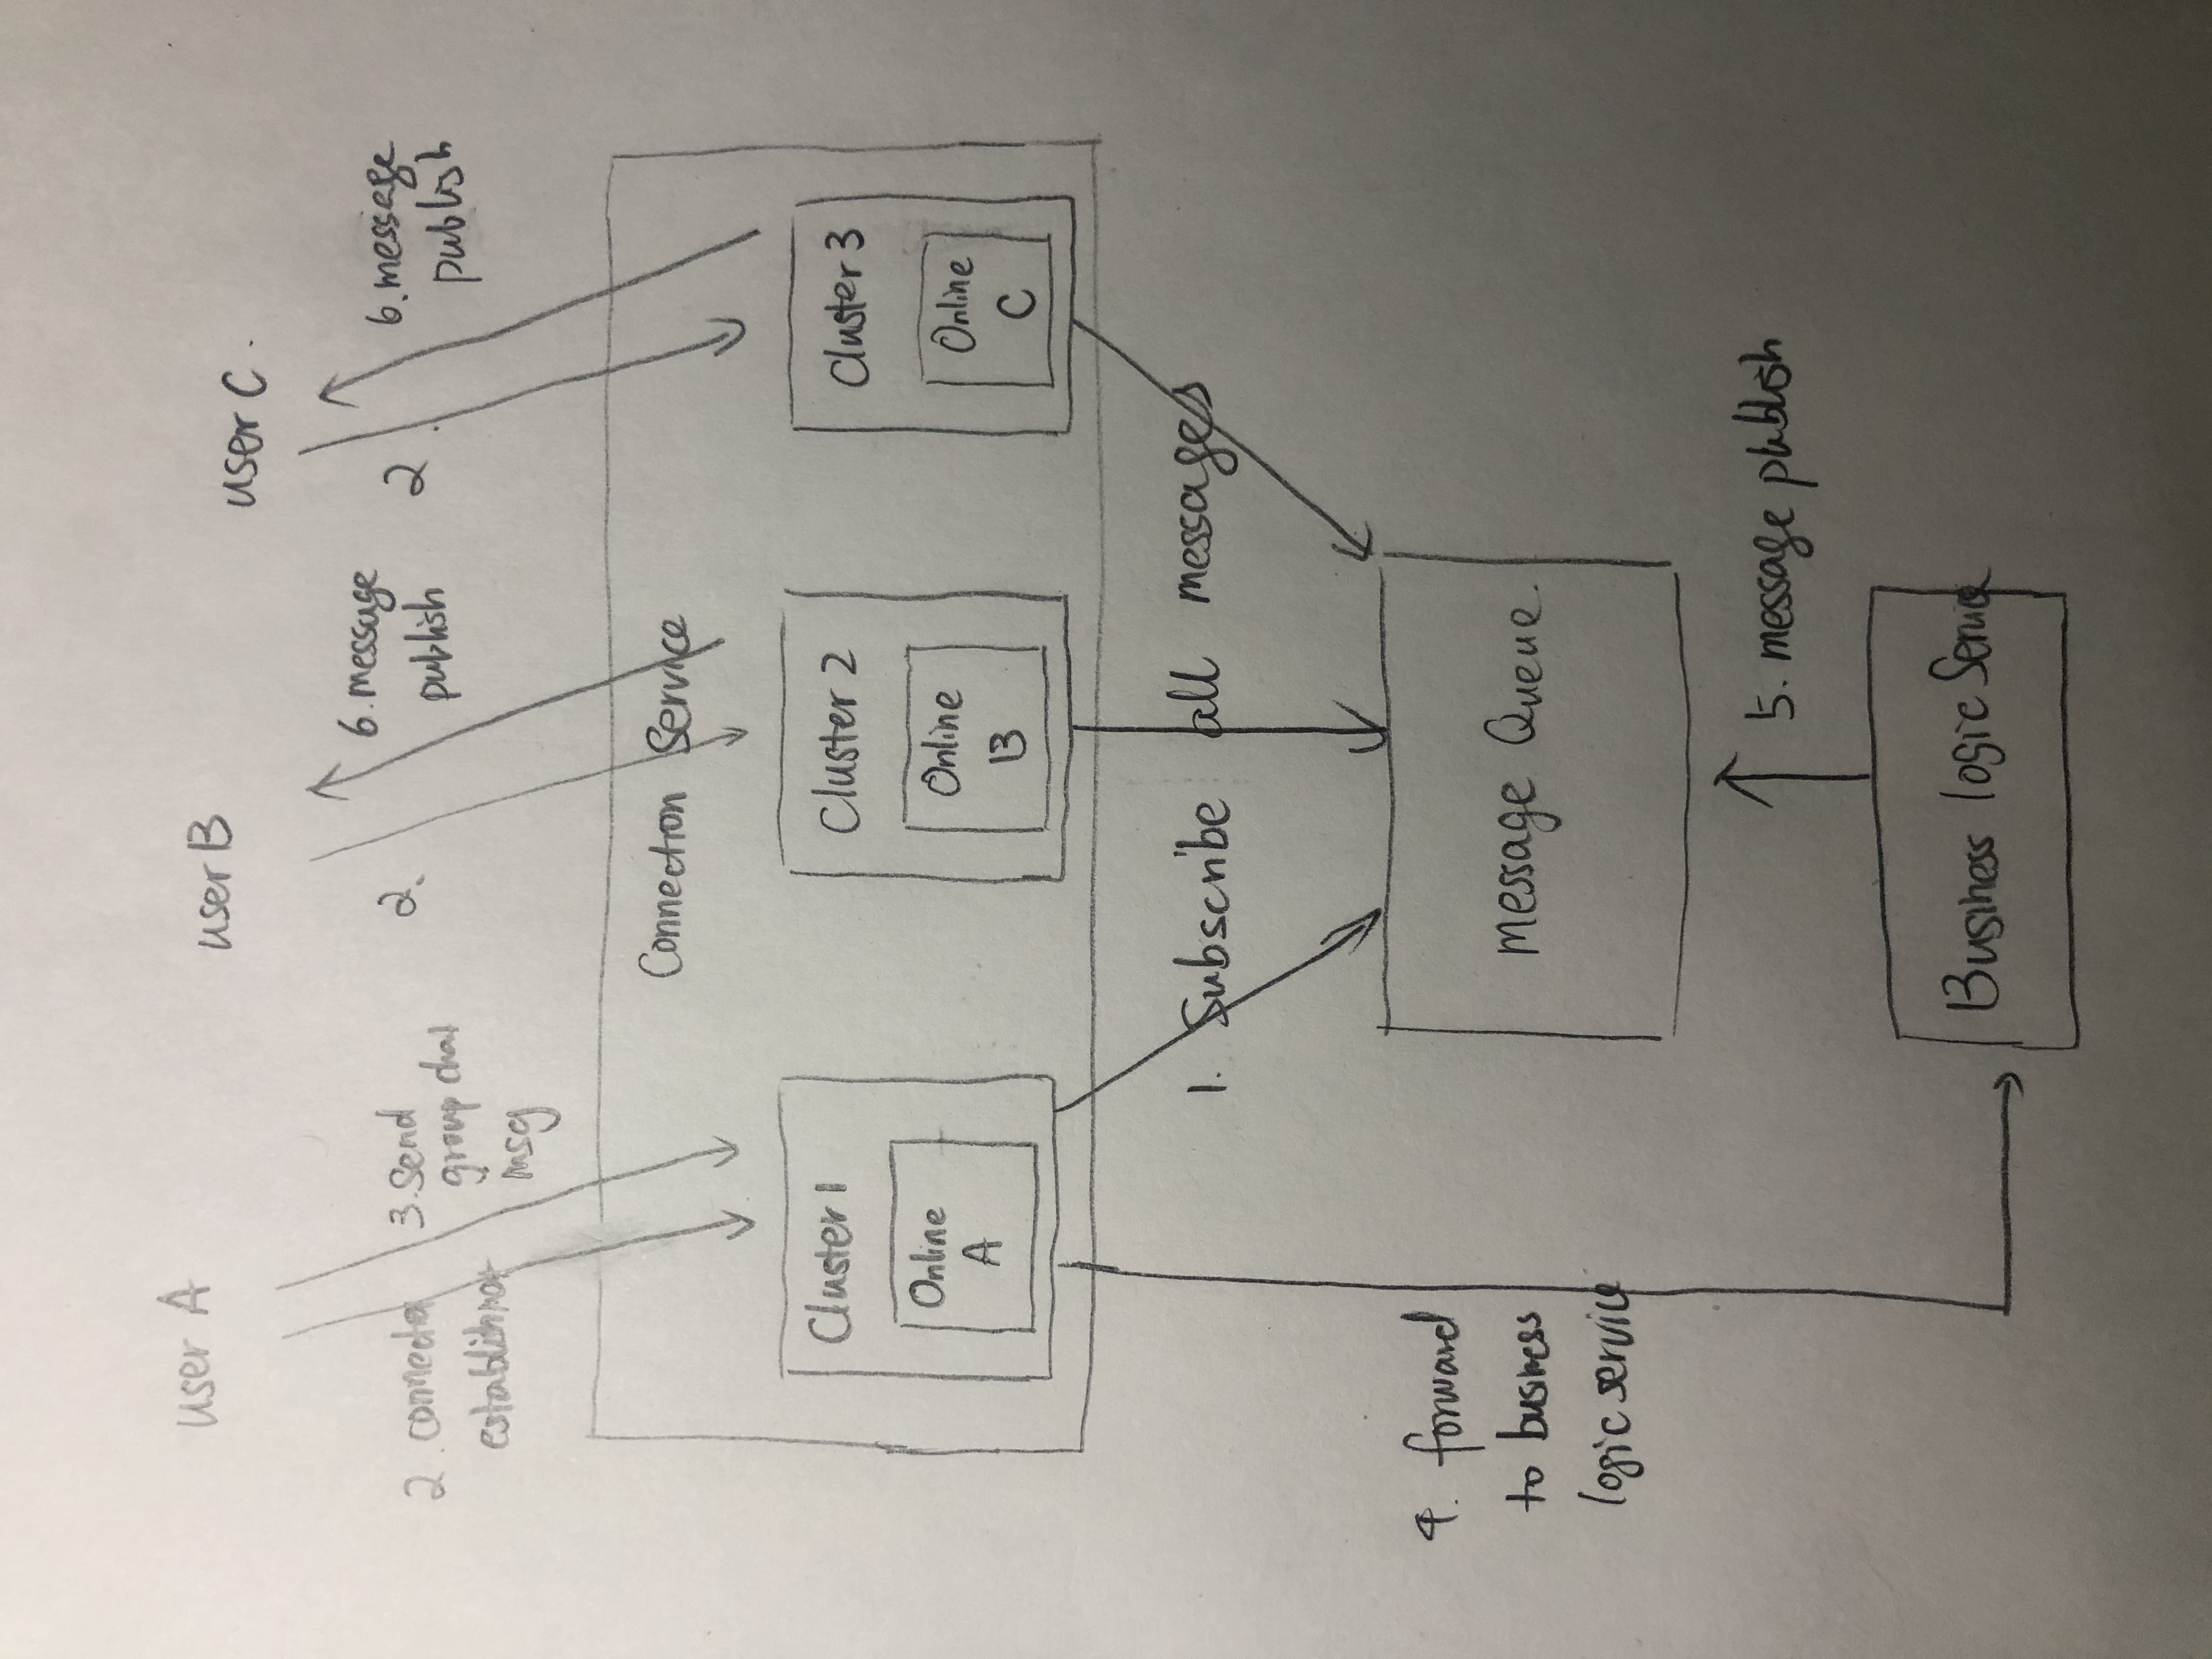 user A
user B
user C.
2. connection
establishment
3. Send
group chat
msg
2.
6. message
publish
2.
6. message
publish
Connection Service
Cluster 1
Online
A
Cluster 2
Online
B
Cluster 3
Online
C
1. Subscribe all messages
4. forward
to business
logic service
Message Queue.
5. message publish
Business logic Service